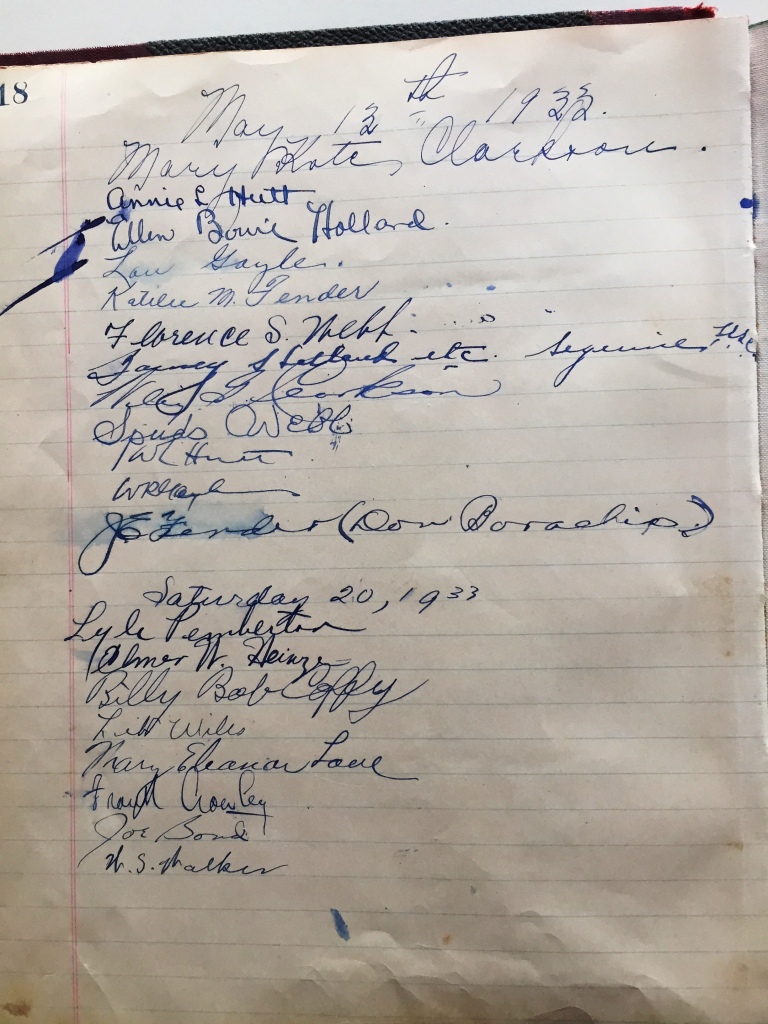 18
May 13th 1933.
Mary Kate Clarkson.
Annie L Hutt
Ellen Bowie Holland.
Lou Gayle.
Katilee M. Fender
Florence S. Webb.
Holland etc. Seguine
Clarkson
Spuds Webb
W Hutt
WR Gayle
JE Fender (Don Borachio)
Saturday 20, 1933
Lyle Pemberton
Elmer W. Heinze
Billy Bob Coffey
Wiles
Mary Eleanor Lowe
Frank Crowley
Joe Bond
W. S. Walker